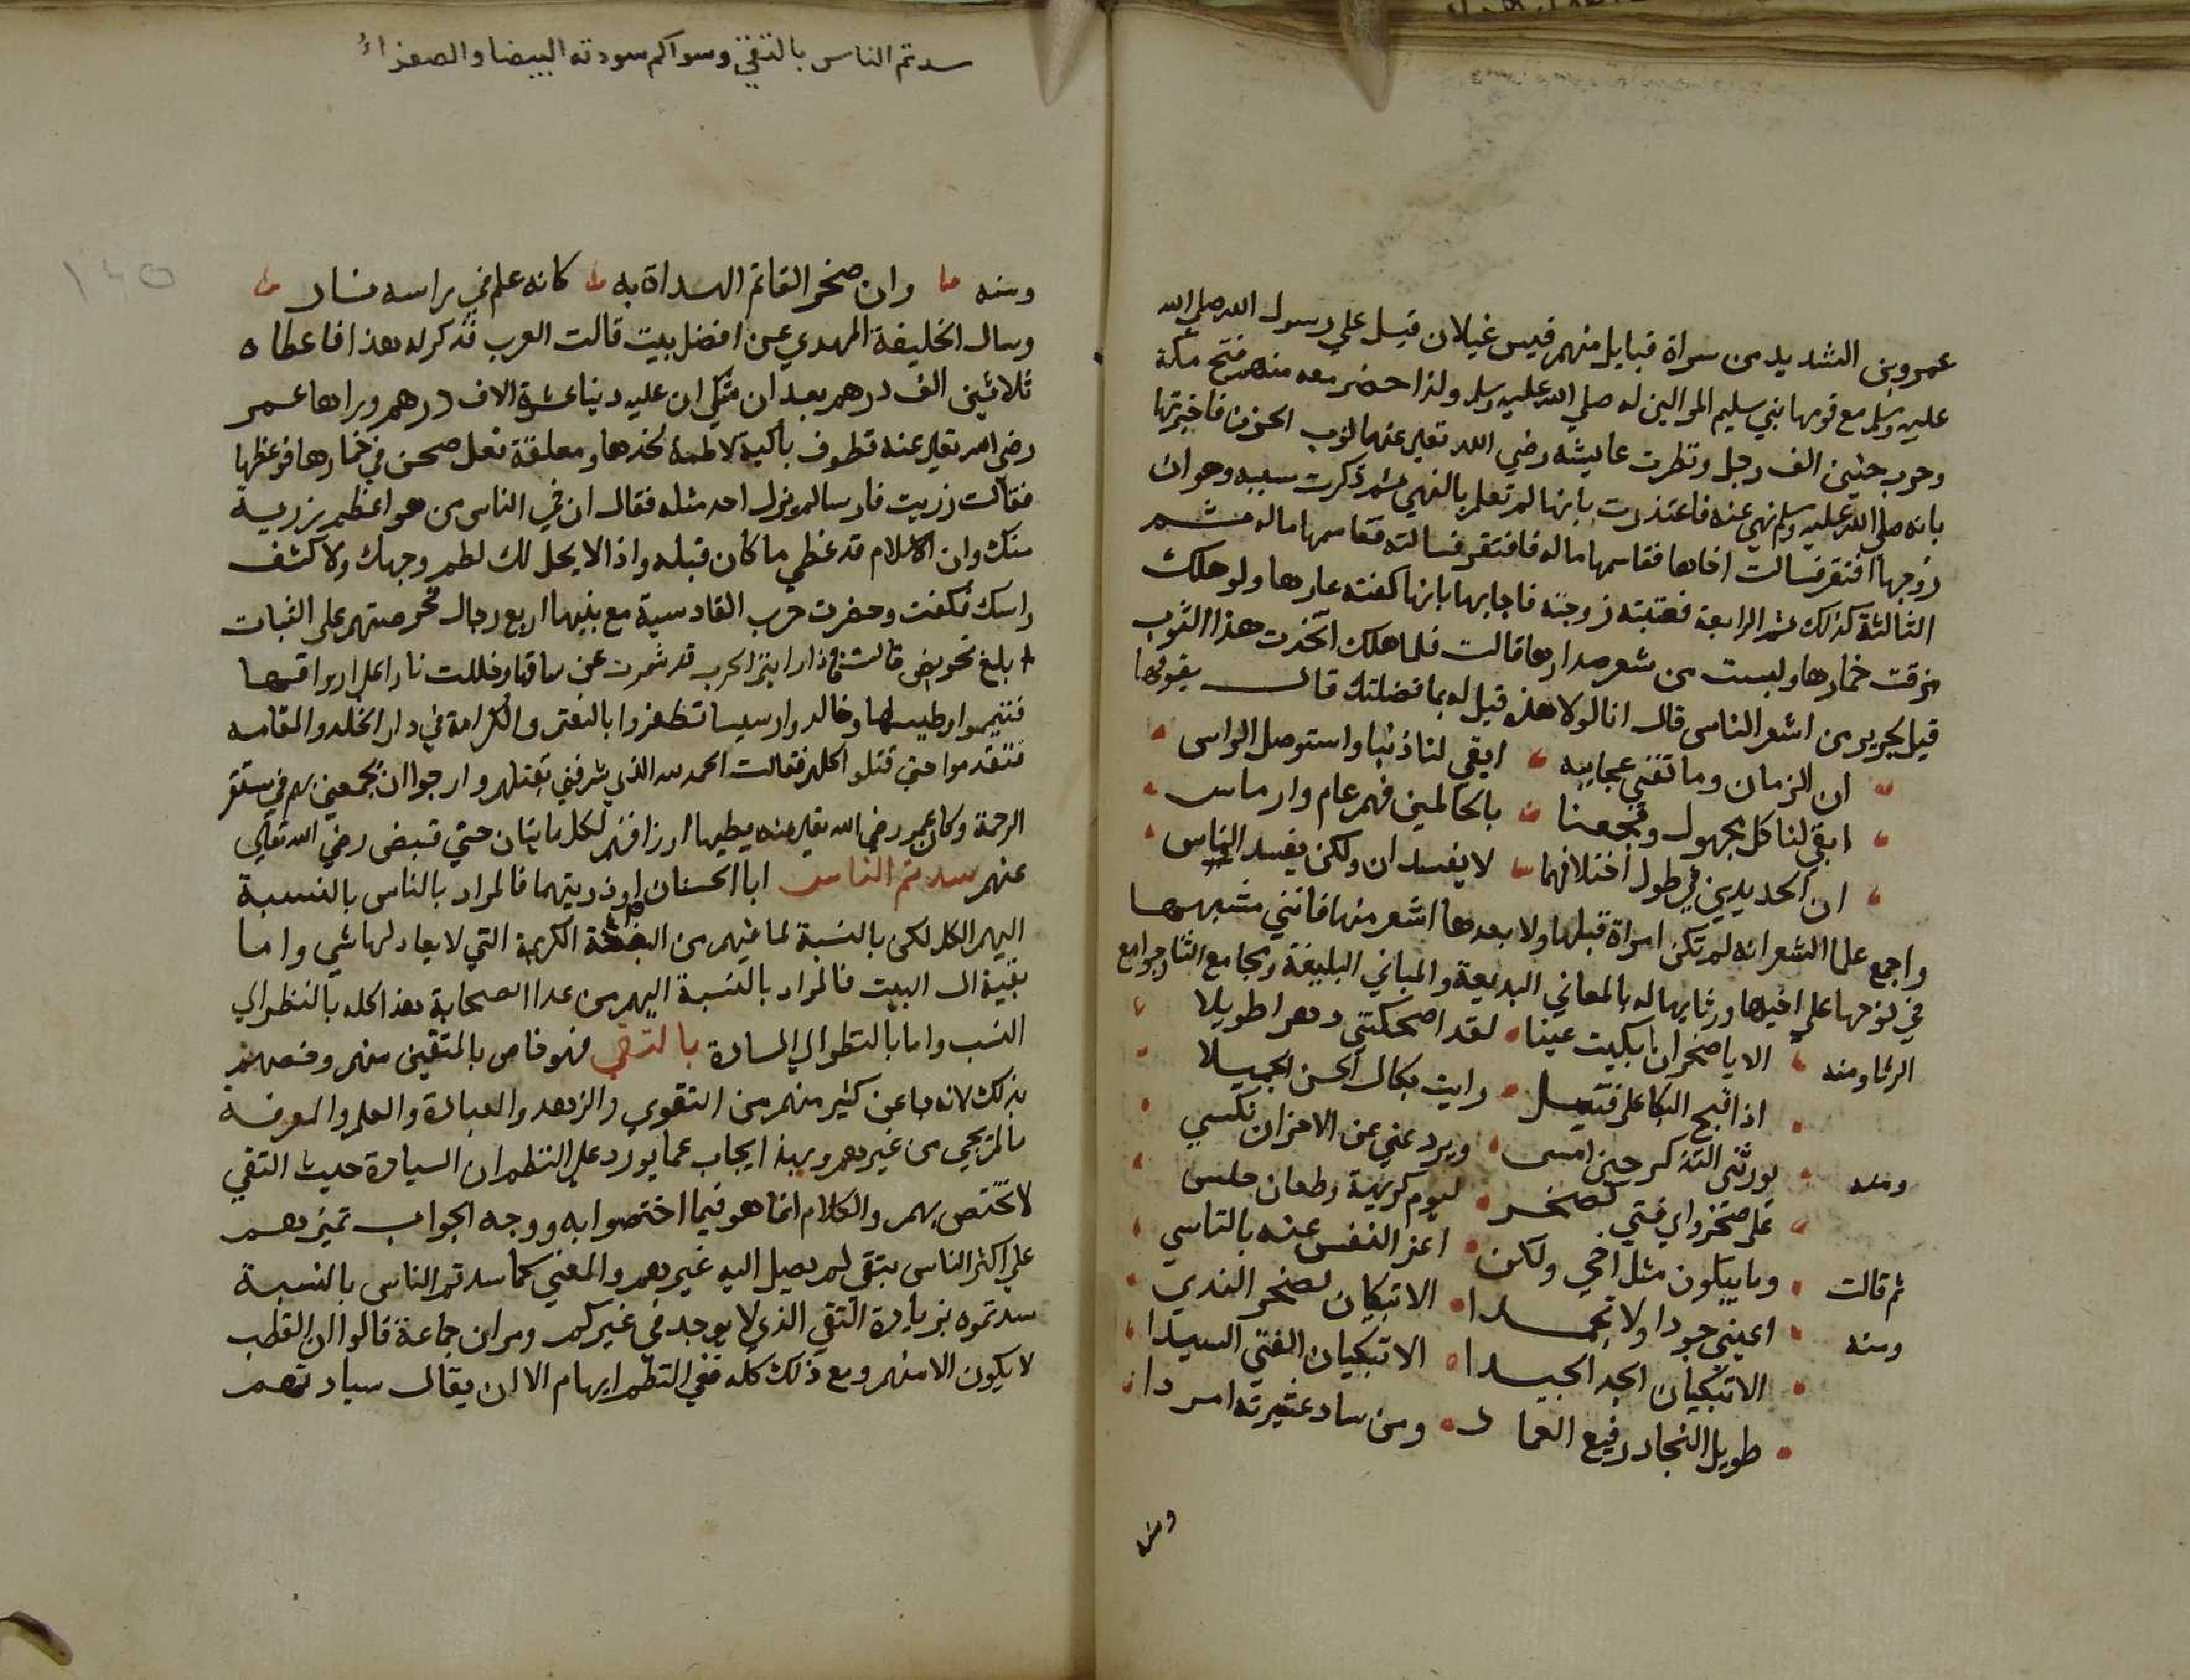 عمرو بن الشديد من سراة قبايل منهم قيس غيلان قيل علي رسول الله صلي الله
عليه وسلم مع قومها بني سليم الموالين له صلي الله عليه وسلم ولذا حضر معه منهم فتح مكة
وحرب حنين الف رجل ونظرت عايشه رضي الله تعالي عنها لثوب الحزن فاخبرتها
بانه صلي الله عليه وسلم نهي عنه فاعتذرت بانها لم تعلم بالنهي ثم ذكرت سببه وهو ان
زوجها افتقر فسالت اخاها فقاسمها ماله فافتقر فسالته فقاسمها ماله ثم
الثالثة كذلك ثم الرابعة فعتبته زوجته فاجابها بانها كفته عارها ولو هلك
مزقت خمارها ولبست من شعر صدارها قالت فلما هلك اتخذت هذا الثوب
قيل لجرير من اشعر الناس قال انا لولا هذه قيل له بما فضلتك قال بقولها
ان الزمان وما تفني عجايبه ابقي لنا ذنبا واستوصل الراس
ابقي لنا كل مجهول وفجعنا بالحالمين فهم عام وارماس
ان الحديدين في طول اختلافهما لا يفسدان ولكن يفسد الناس
واجمع علما الشعر انه لم تكن امراة قبلها ولا بعدها اشعر منها فانني مشبهها
في نوحها علي اخيها ورثايها له بالمعاني البديعة والمباني البليغة ومجامع الثنا وجوامع
الرثا ومنه الا يا صخر ان ابكيت عينا لقد اضحكتني دهرا طويلا
اذا قبح البكا علي قتيل رايت بكاك الحسن الجميلا
ومنه يورثني التذكر حين امسي ويردعني عن الاحزان نكسي
علي صخر واي فتي كصخر ليوم كريهة وطعان حلس
ثم قالت وما يبكون مثل اخي ولكن اعز النفس عنه بالتاسي
ومنه اعيني جودا ولا تجمدا الا تبكيان لصخر الندي
الا تبكيان الجد الجيدا الا تبكيان الفتي السيدا
طويل النجاد رفيع العماد ومن ساد عشيرته امردا
ومنه
سدتم الناس بالتقي وسواكم سودته البيضا والصفراءُ
١٤٥
ومنه وان صخر القاتم الهداة به كانه علم في راسه نار
وسال الخليفة المهدي عن افضل بيت قالت العرب فذكر له هذا فاعطاه
ثلاثين الف درهم بعد ان شكي ان عليه دينا عشرة الاف درهم وبراها عمر
رضي الله تعالي عنه تطوف باكية لاطمة لخدها ومعلقة نعل صخر في خمارها فوعظها
فقالت رزيت فارسا لم يرزا احد مثله فقال ان في الناس من هو اعظم رزية
منك وان الاسلام قد غطي ما كان قبله واذا لا يحل لك لطم وجهك ولا كشف
راسك فكفت وحضرت حرب القادسية مع بنيها اربع رجال فحرصتهم علي الثبات
بابلغ تحريض قالت فاذا رايتم الحرب قد شمرت عن ساقها وجللت نارا علي ارواقها
فتيمموا وطيسها وجالدوا رسيسها تظفروا بالغنم والكرامة في دار الخلد والمقامه
فتقدموا حتي قتلوا كلهم فقالت الحمد لله الذي شرفني بقتلهم وارجوا ان يجمعني بهم في مستقر
الرحمة وكان عمر رضي الله تعالي عنه يعطيها ارزاقهم لكل مايتان حتي قبض رضي الله تعالي
عنهم سدتم الناس ابا الحسنان او ذريتهما فالمراد بالناس بالنسبة
اليهم الكل لكن بالنسبة لما فيهم من البضعة الكريمة التي لا يعادلها شي واما
بقية ال البيت فالمراد بالنسبة اليهم من عدا الصحابة هذا كله بالنظر الي
النسب واما بالنظر الي السادة بالتقي فهو خاص بالمتقين منهم وخصهم
بذلك لانه جا عن كثير منهم من التقوي والزهد والعبادة والعلم والمعرفة
ما لم يجي من غيرهم وبهذا يجاب عما يورد علي النظم ان السيادة حيث التقي
لا تختص بهم والكلام انما هو فيما اختصوا به ووجه الجواب تميزهم
علي اكثر الناس بتقي لم يصل اليه غيرهم والمعني كما سدتم الناس بالنسبة
سدتموه بزيادة التقي الذي لا يوجد في غيركم ومر ان جماعة قالوا ان القطب
لا يكون الا منهم ومع ذلك كله ففي النظم ايهام الا ان يقال سيادتهم